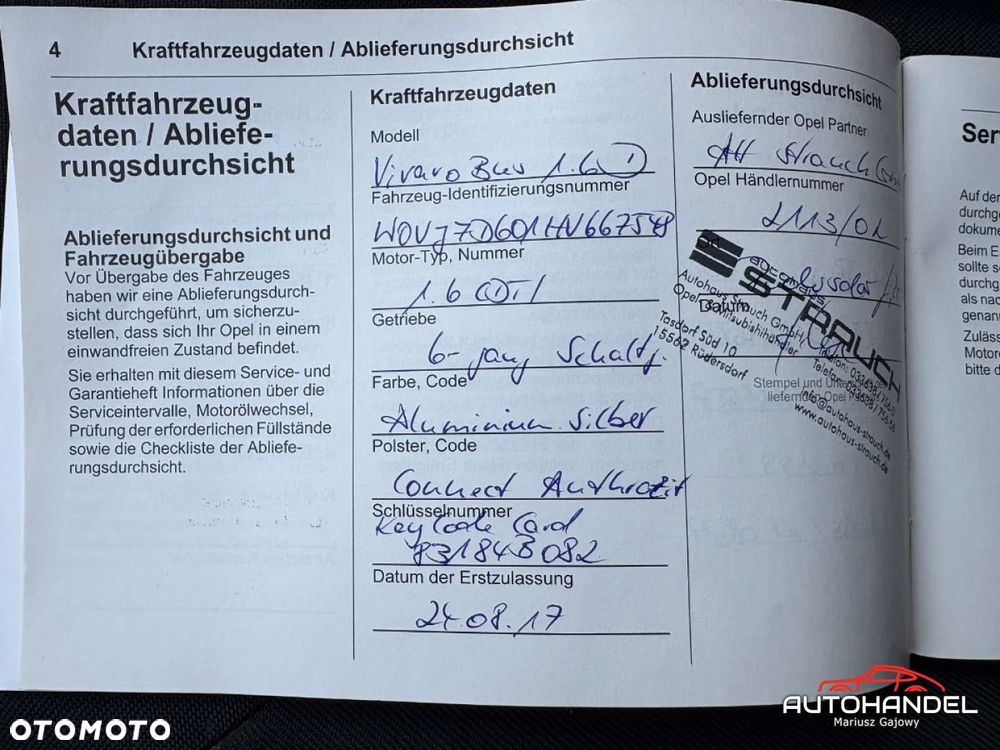 4 Kraftfahrzeugdaten / Ablieferungsdurchsicht
Kraftfahrzeug-
daten / Abliefe-
rungsdurchsicht
Ablieferungsdurchsicht und
Fahrzeugübergabe
Vor Übergabe des Fahrzeuges
haben wir eine Ablieferungsdurch-
sicht durchgeführt, um sicherzu-
stellen, dass sich Ihr Opel in einem
einwandfreien Zustand befindet.
Sie erhalten mit diesem Service- und
Garantieheft Informationen über die
Serviceintervalle, Motorölwechsel,
Prüfung der erforderlichen Füllstände
sowie die Checkliste der Abliefe-
rungsdurchsicht.
Kraftfahrzeugdaten
Modell
Vivaro Bus 1.6 D
Fahrzeug-Identifizierungsnummer
W0VJ7D601HV667548
Motor-Typ, Nummer
1.6 CDTI
Getriebe
6-gang Schaltg.
Farbe, Code
Aluminium Silber
Polster, Code
Connect Anthrazit
Schlüsselnummer
KeyCode Card
83184B082
Datum der Erstzulassung
24.08.17
Ablieferungsdurchsicht
Ausliefernder Opel Partner
AH Strauch
Opel Händlernummer
2113/01
Datum
autohaus
STRAUCH
Autohaus Strauch GmbH
Opel- & Mitsubishihändler
Tasdorf Süd 10
15562 Rüdersdorf
Telefon: 033638/756-0
Telefax: 033638/756-56
info@autohaus-strauch.de
www.autohaus-strauch.de
Stempel und
Opel
Ser
Auf der
durchge
dokume
Beim E
sollte s
durchg
als nac
genann
Zuläss
Motor
bitte d
OTOMOTO
AUTOHANDEL
Mariusz Gajowy